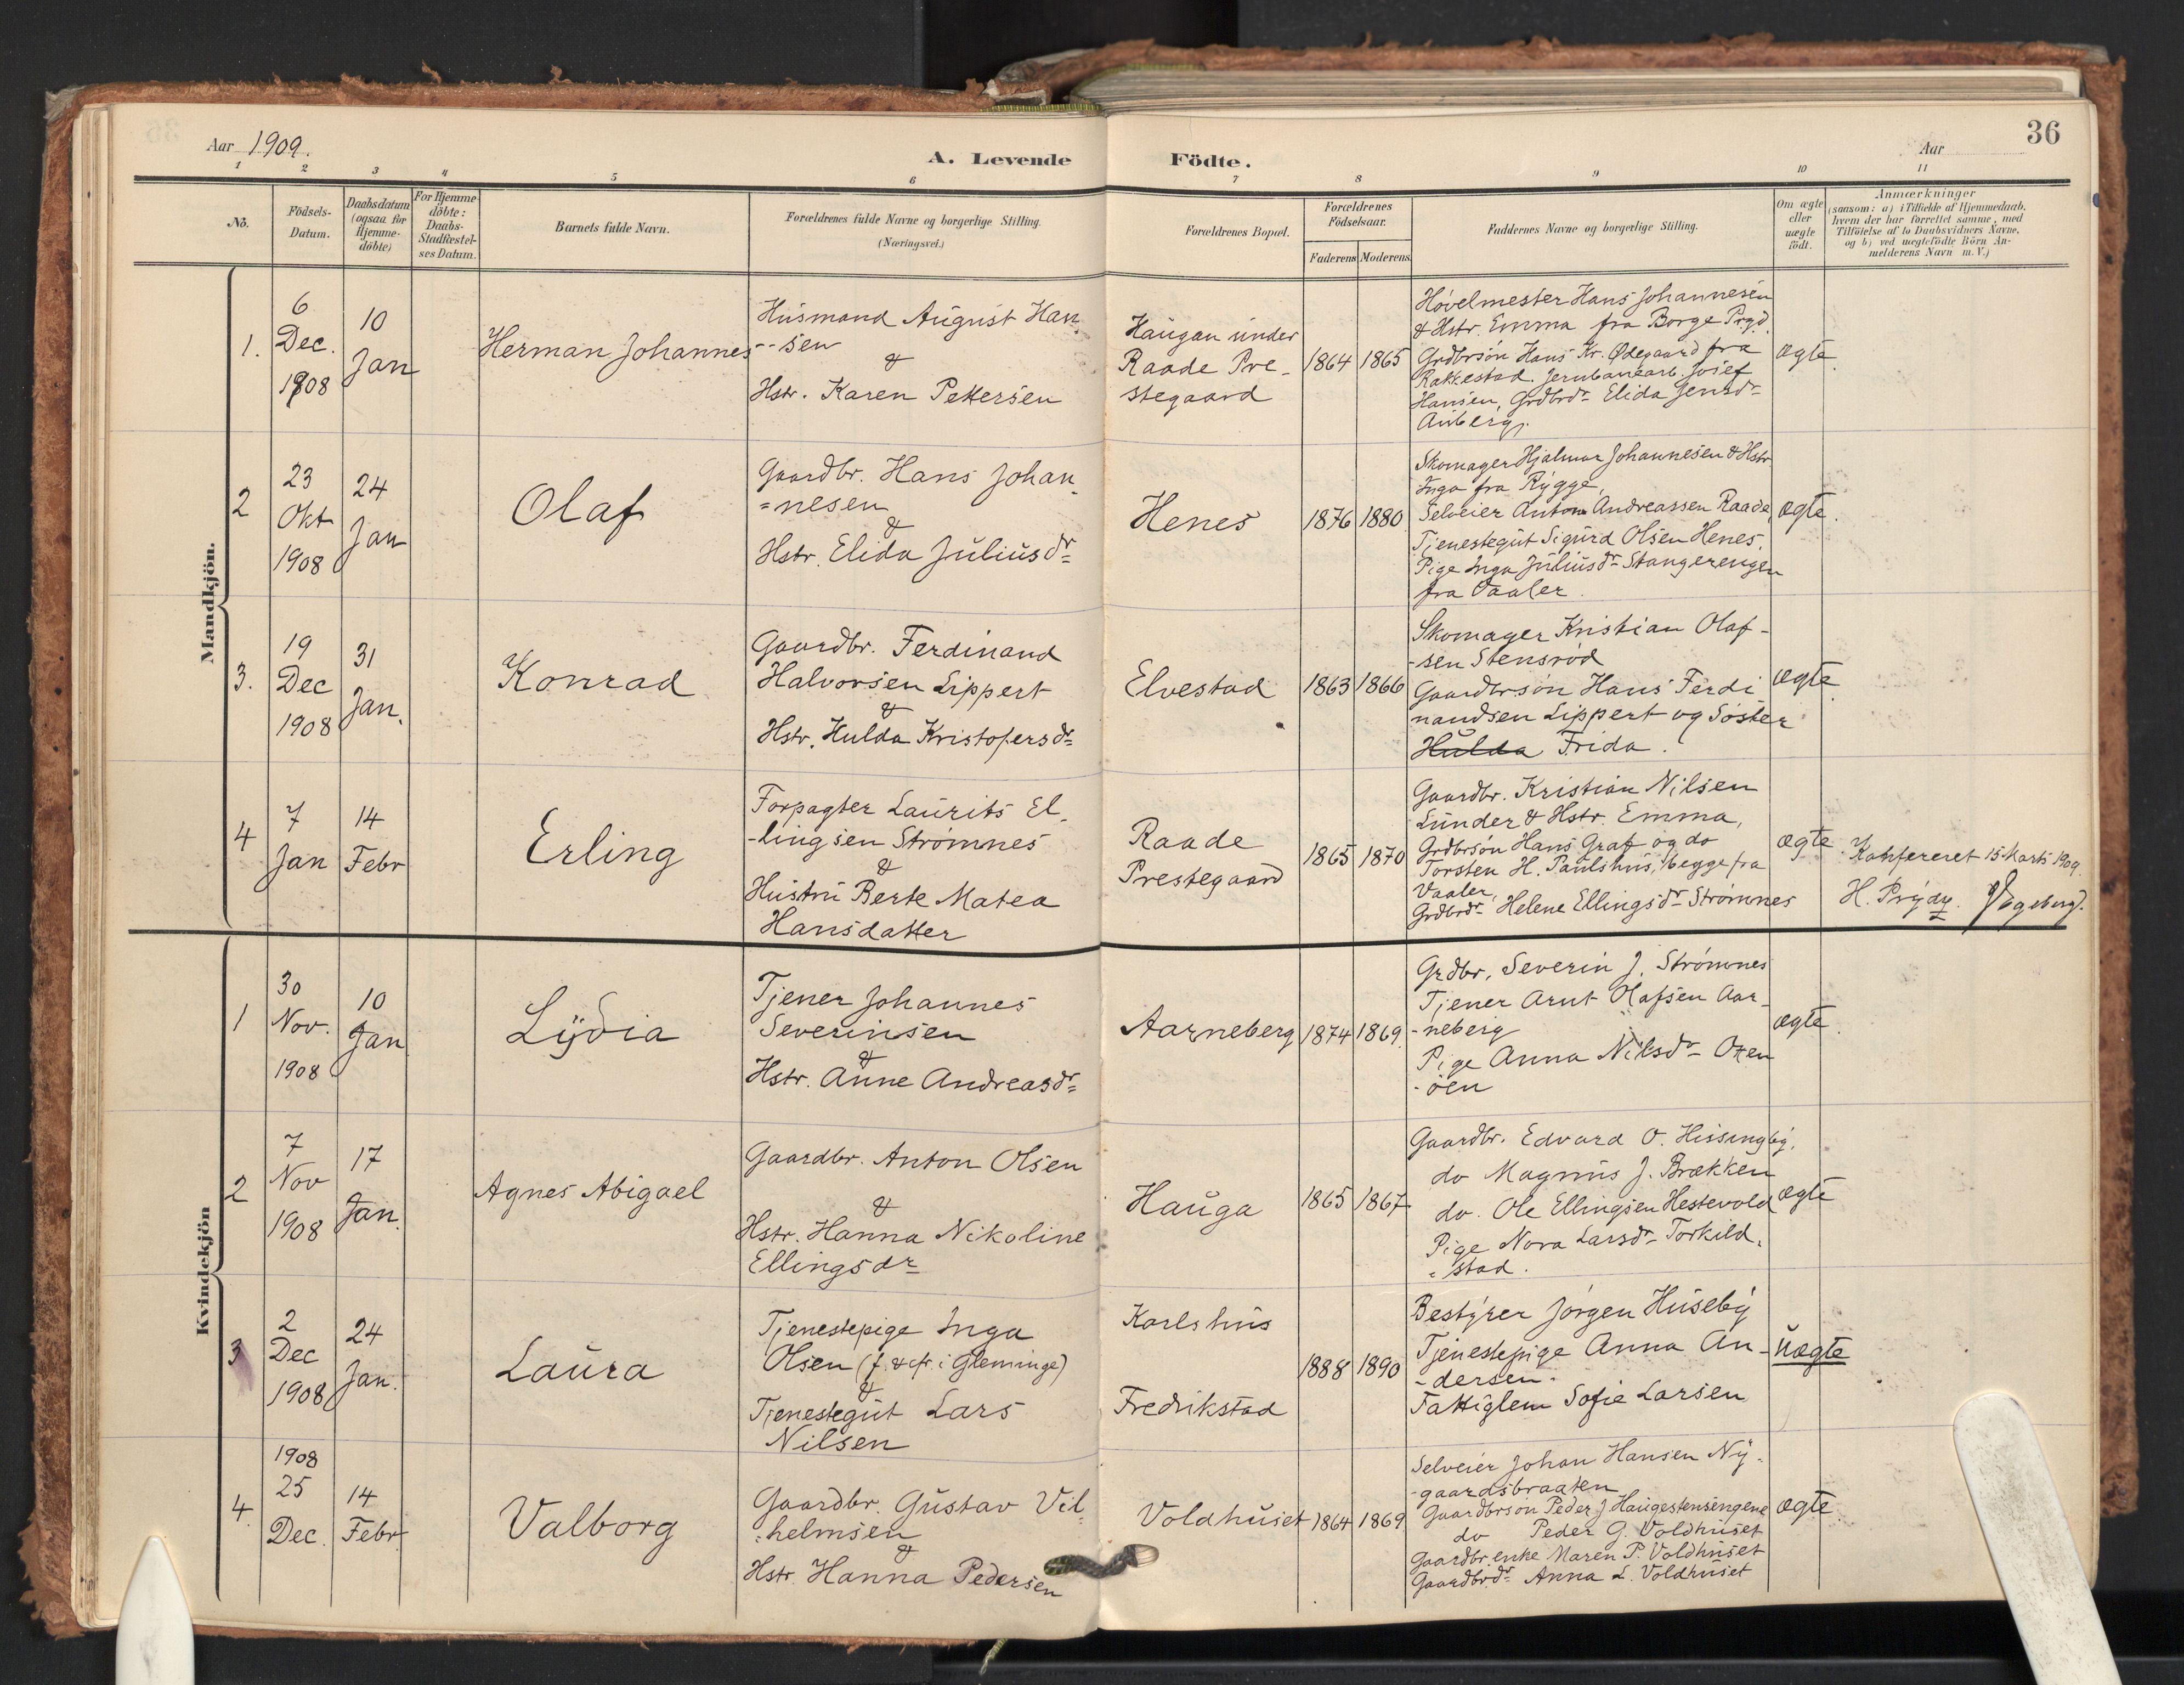 36
Aar 1909.
A. Levende Födte.
Aar
1 2 3 4 5 6 7 8 9 10 11
No.
Födsels-
Datum.
Daabsdatum
(ogsaa for
Hjemme-
döbte)
For Hjemme
döbte:
Daabs-
Stadfæstel-
ses Datum.
Barnets fulde Navn.
Forældrenes fulde Navne og borgerlige Stilling.
(Næringsvei.)
Forældrenes Bopæl.
Forældrenes
Födselsaar.
Faderens Moderens
Faddernes Navne og borgerlige Stilling.
Om ægte
eller
uægte
födt.
Anmærkninger
(saasom: a) i Tilfælde af Hjemmedaab,
hvem der har forrettet samme, med
Tilföielse af to Daabsvidners Navne,
og b) ved uægtefödte Börn An-
melderens Navn m. V.)
Mandkjön.
1.
6
Dec.
1908
10
Jan
Herman Johannes
Husmand August Han
-sen
&
Hstr. Karen Pettersen
Haugan under
Raade Pre-
stegaard
1864
1865
Høvelmester Hans Johannesen
& Hstr. Emma fra Borge Prgd.
Grdbrsøn Hans Kr. Ødegaard fra
Rakkestad. Jernbanearb. Josef
Hansen, Grdbrdr Elida Jensdr
Auberg.
ægte.
2
23
Okt
1908
24
Jan
Olaf
Gaardbr. Hans Johan
=nesen
&
Hstr. Elida Juliusdr
Henes
1876
1880
Skomager Hjalmar Johannesen & Hstr
Inga fra Rygge,
Selveier Anton Andreassen Raade,
Tjenestegut Sigurd Olsen Henes.
Pige Inga Juliusdr Stangerengen
fra Vaaler.
ægte.
3.
19
Dec
1908
31
Jan.
Konrad
Gaardbr. Ferdinand
Halvorsen Lippert
&
Hstr. Hulda Kristofersdr
Elvestad
1863
1866
Skomager Kristian Olaf-
-sen Stensrød
Gaardbrsøn Hans Ferdi
nandsen Lippert og Søster
Hulda Frida.
ægte.
4
7
Jan
14
Febr
Erling
Forpagter Laurits El-
-lingsen Strømnes
&
Hustru Berte Matea
Hansdatter
Raade
Prestegaard
1865
1870
Gaardbr. Kristian Nilsen
Lunder & Hstr. Emma,
Grdbrsøn Hans Graf og do
Torsten H. Paulshus, begge fra
Vaaler,
Grdbrdr Helene Ellingsdr Strømnes
ægte.
Konfereret 15 Marts 1909.
H. Prydz.
Kvindekjön
1
30
Nov.
1908
10
Jan
Lydia
Tjener Johannes
Severinsen
&
Hstr. Anne Andreasdr
Aarneberg
1874
1869.
Grdbr. Severin J. Strømnes
Tjener Arnt Olafsen Aar-
-neberg
Pige Anna Nilsdr Oten
-øen
ægte.
2
7
Nov
1908
17
Jan.
Agnes Abigael
Gaardbr. Anton Olsen
&
Hstr. Hanna Nikoline
Ellingsdr
Hauga
1865
1867
Gaardbr. Edvard O. Hissingby.
do Magnus J. Brækken
do. Ole Ellingsen Hestevold
Pige Nora Larsdr Torkild-
-stad.
ægte
3
2
Dec
1908
24
Jan.
Laura
Tjenestepige Inga
Olsen (f. & cfr. i Glemminge)
&
Tjenestegut Lars
Nilsen
Karlshus
Fredrikstad
1888
1890
Bestyrer Jørgen Huseby
Tjenestepige Anna An-
-dersen.
Fattiglem Sofie Larsen
uægte
4.
1908
25
Dec.
14
Febr
Valborg
Gaardbr. Gustav Vil
-helmsen
&
Hstr. Hanna Pedersen
Voldhuset
1864
1869
Selveier Johan Hansen Ny-
-gaardsbraaten
Gaardbrsøn Peder J. Haugestensengene
do Peder G. Voldhuset
Gaardbr.enke Maren P. Voldhuset
Gaardbrdr Anna L. Voldhuset
ægte.